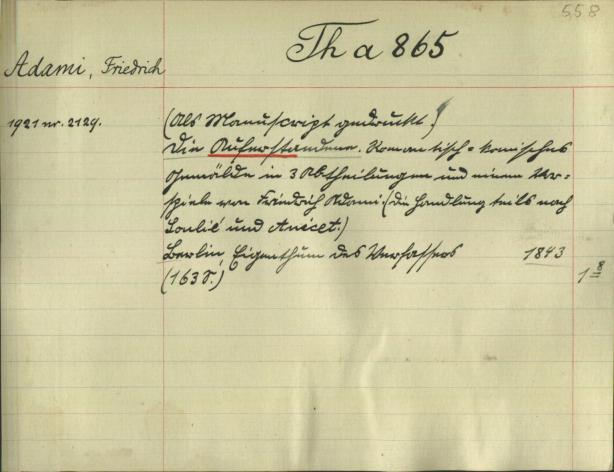 558
Th a 865
Adami, Friedrich
1921 nr. 2129.
(Als Manuscript gedruckt.)
Die Auferstandene. Romantisch-komisches
Gemälde in 3 Abtheilungen und einem Vor-
spiele von Friedrich Adami. (Die Handlung teils nach
Soulié und Anicet.)
Berlin, Eigenthum des Verfassers 1843
(163 S.)
1 8